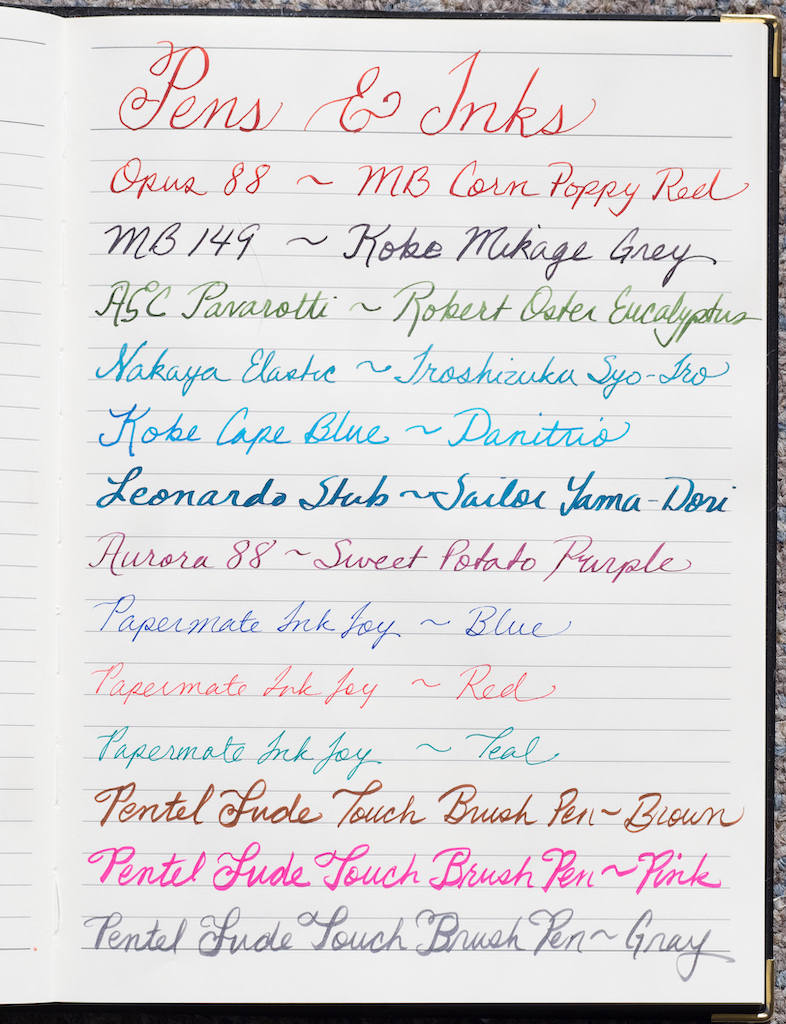 Pens & Inks
Opus 88 ~ MB Corn Poppy Red
MB 149 ~ Kobe Mikage Grey
ASC Pavarotti ~ Robert Oster Eucalyptus
Nakaya Elastic ~ Iroshizuku Syo-Iro
Kobe Cape Blue ~ Danitrio
Leonardo Stub ~ Sailor Yama-Dori
Aurora 88 ~ Sweet Potato Purple
Papermate Ink Joy ~ Blue
Papermate Ink Joy ~ Red
Papermate Ink Joy ~ Teal
Pentel Fude Touch Brush Pen ~ Brown
Pentel Fude Touch Brush Pen ~ Pink
Pentel Fude Touch Brush Pen ~ Gray